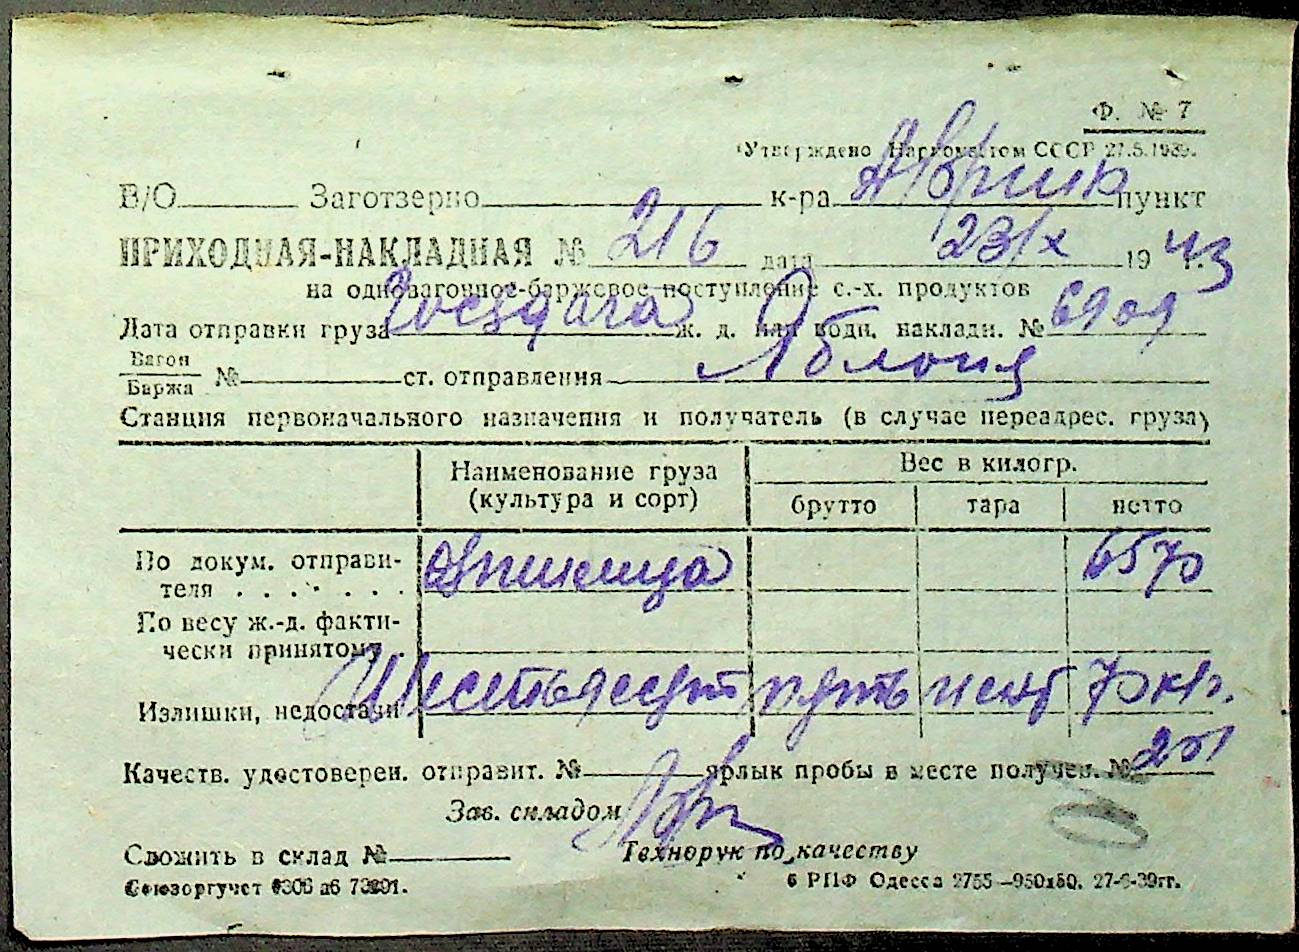 Ф. № 7
Утверждено Наркоматом СССР 27.5.1939.
В/О Заготзерно к-ра пункт
ПРИХОДНАЯ-НАКЛАДНАЯ № 216 дата 23/X 1943 г.
на одновагонное-баржевое поступление с.-х. продуктов
Дата отправки груза ж. д. или водн. накладн. № 6909
Вагон
Баржа № ст. отправления
Станция первоначального назначения и получатель (в случае переадрес. груза)
Наименование груза Вес в килогр.
(культура и сорт) брутто тара нетто
По докум. отправи- пшеница 6570
теля . . . . . . .
По весу ж.-д. факти-
чески принятому
Излишки, недостачи Шестьдесят пять 70 кг.
Качеств. удостоверен. отправит. № ярлык пробы в месте получен. № 251
Зав. складом
Сложить в склад № Технорук по качеству
Союзоргучет
6 РПФ Одесса 2755